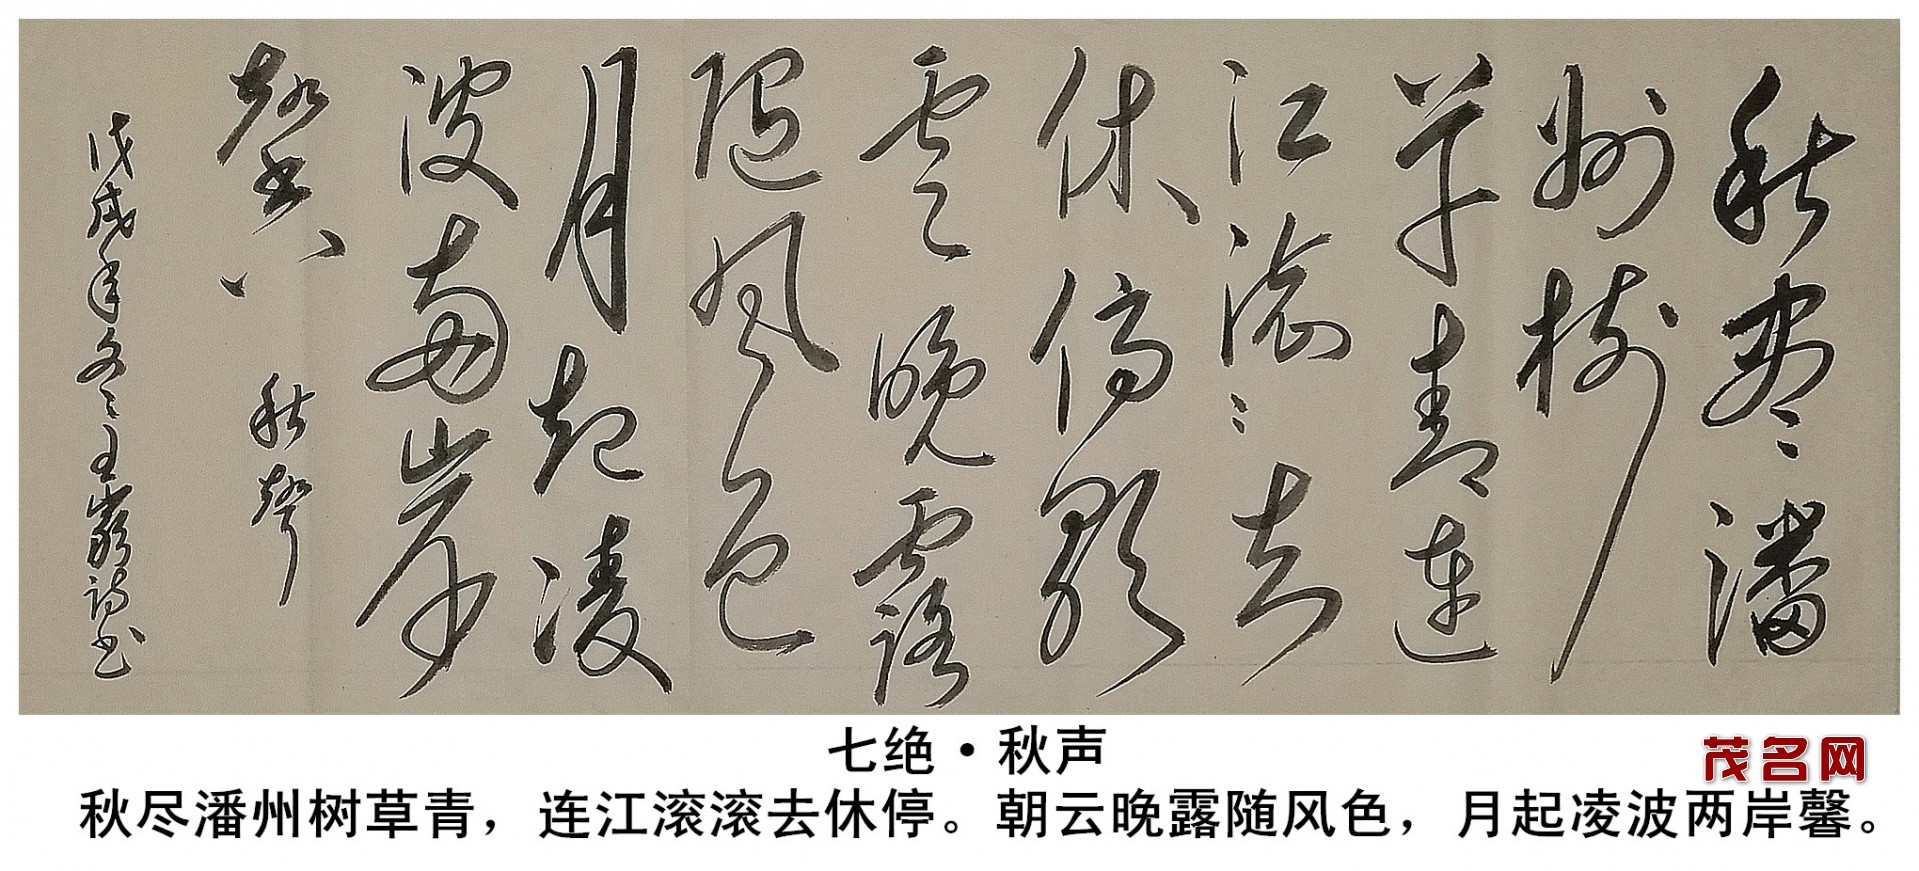 秋尽潘
州树
草青连
江滚滚去
休停朝
云晚露
随风色
月起凌
波两岸
馨 秋声
戊戌年冬王岩诗书
七绝·秋声
秋尽潘州树草青，连江滚滚去休停。朝云晚露随风色，月起凌波两岸馨。
茂名网